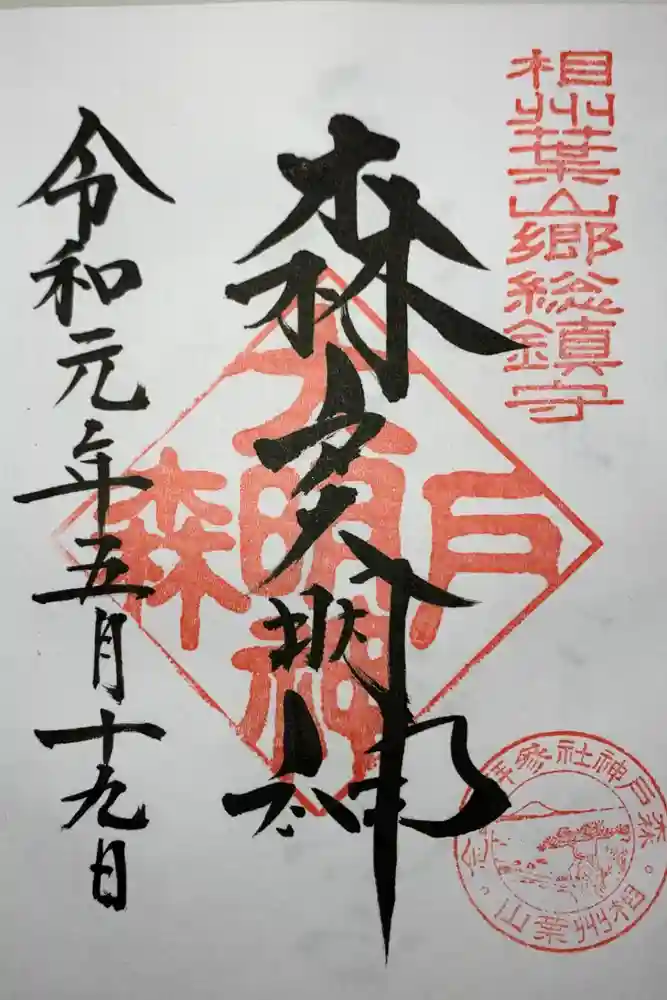 相州葉山郷総鎮守
森戸大明神
大明神
森戸
令和元年五月十九日
森戸神社
相州葉山